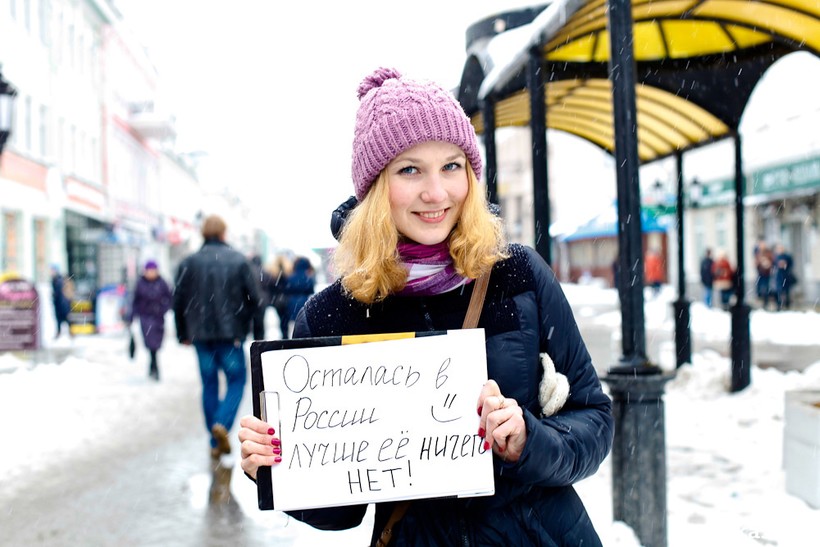 Осталась в
России
лучше её ничего
НЕТ!